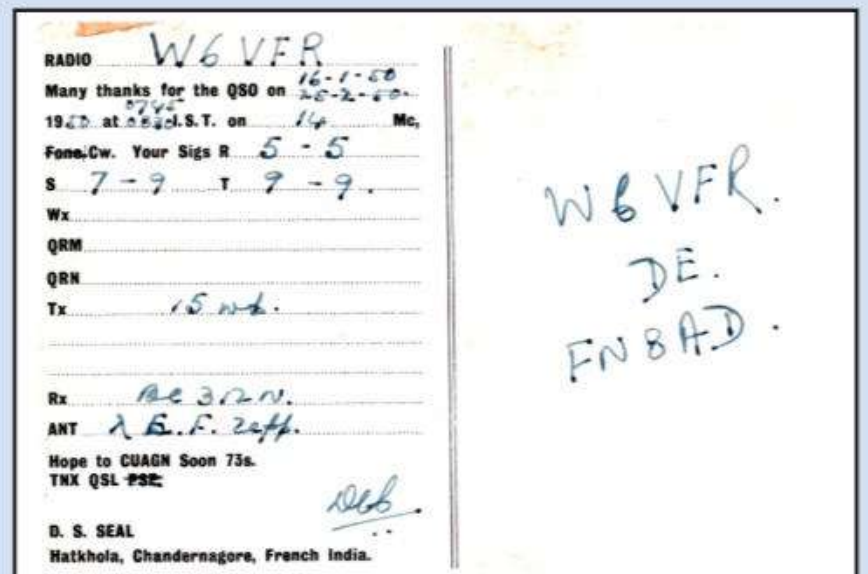 RADIO W6VFR
16-1-50
Many thanks for the QSO on 25-2-50.
0745
1950 at 0830 I.S.T. on 14 Mc,
Fone. Cw. Your Sigs R 5 - 5
S 7 - 9 T 9 - 9.
Wx
QRM
QRN
Tx 15 wts.
Rx BC 312 N.
ANT λ E.F. Zepp.
Hope to CUAGN Soon 73s.
TNX QSL PSE
D. S. SEAL
Hatkhola, Chandernagore, French India.
W6VFR.
DE.
FN8AD.